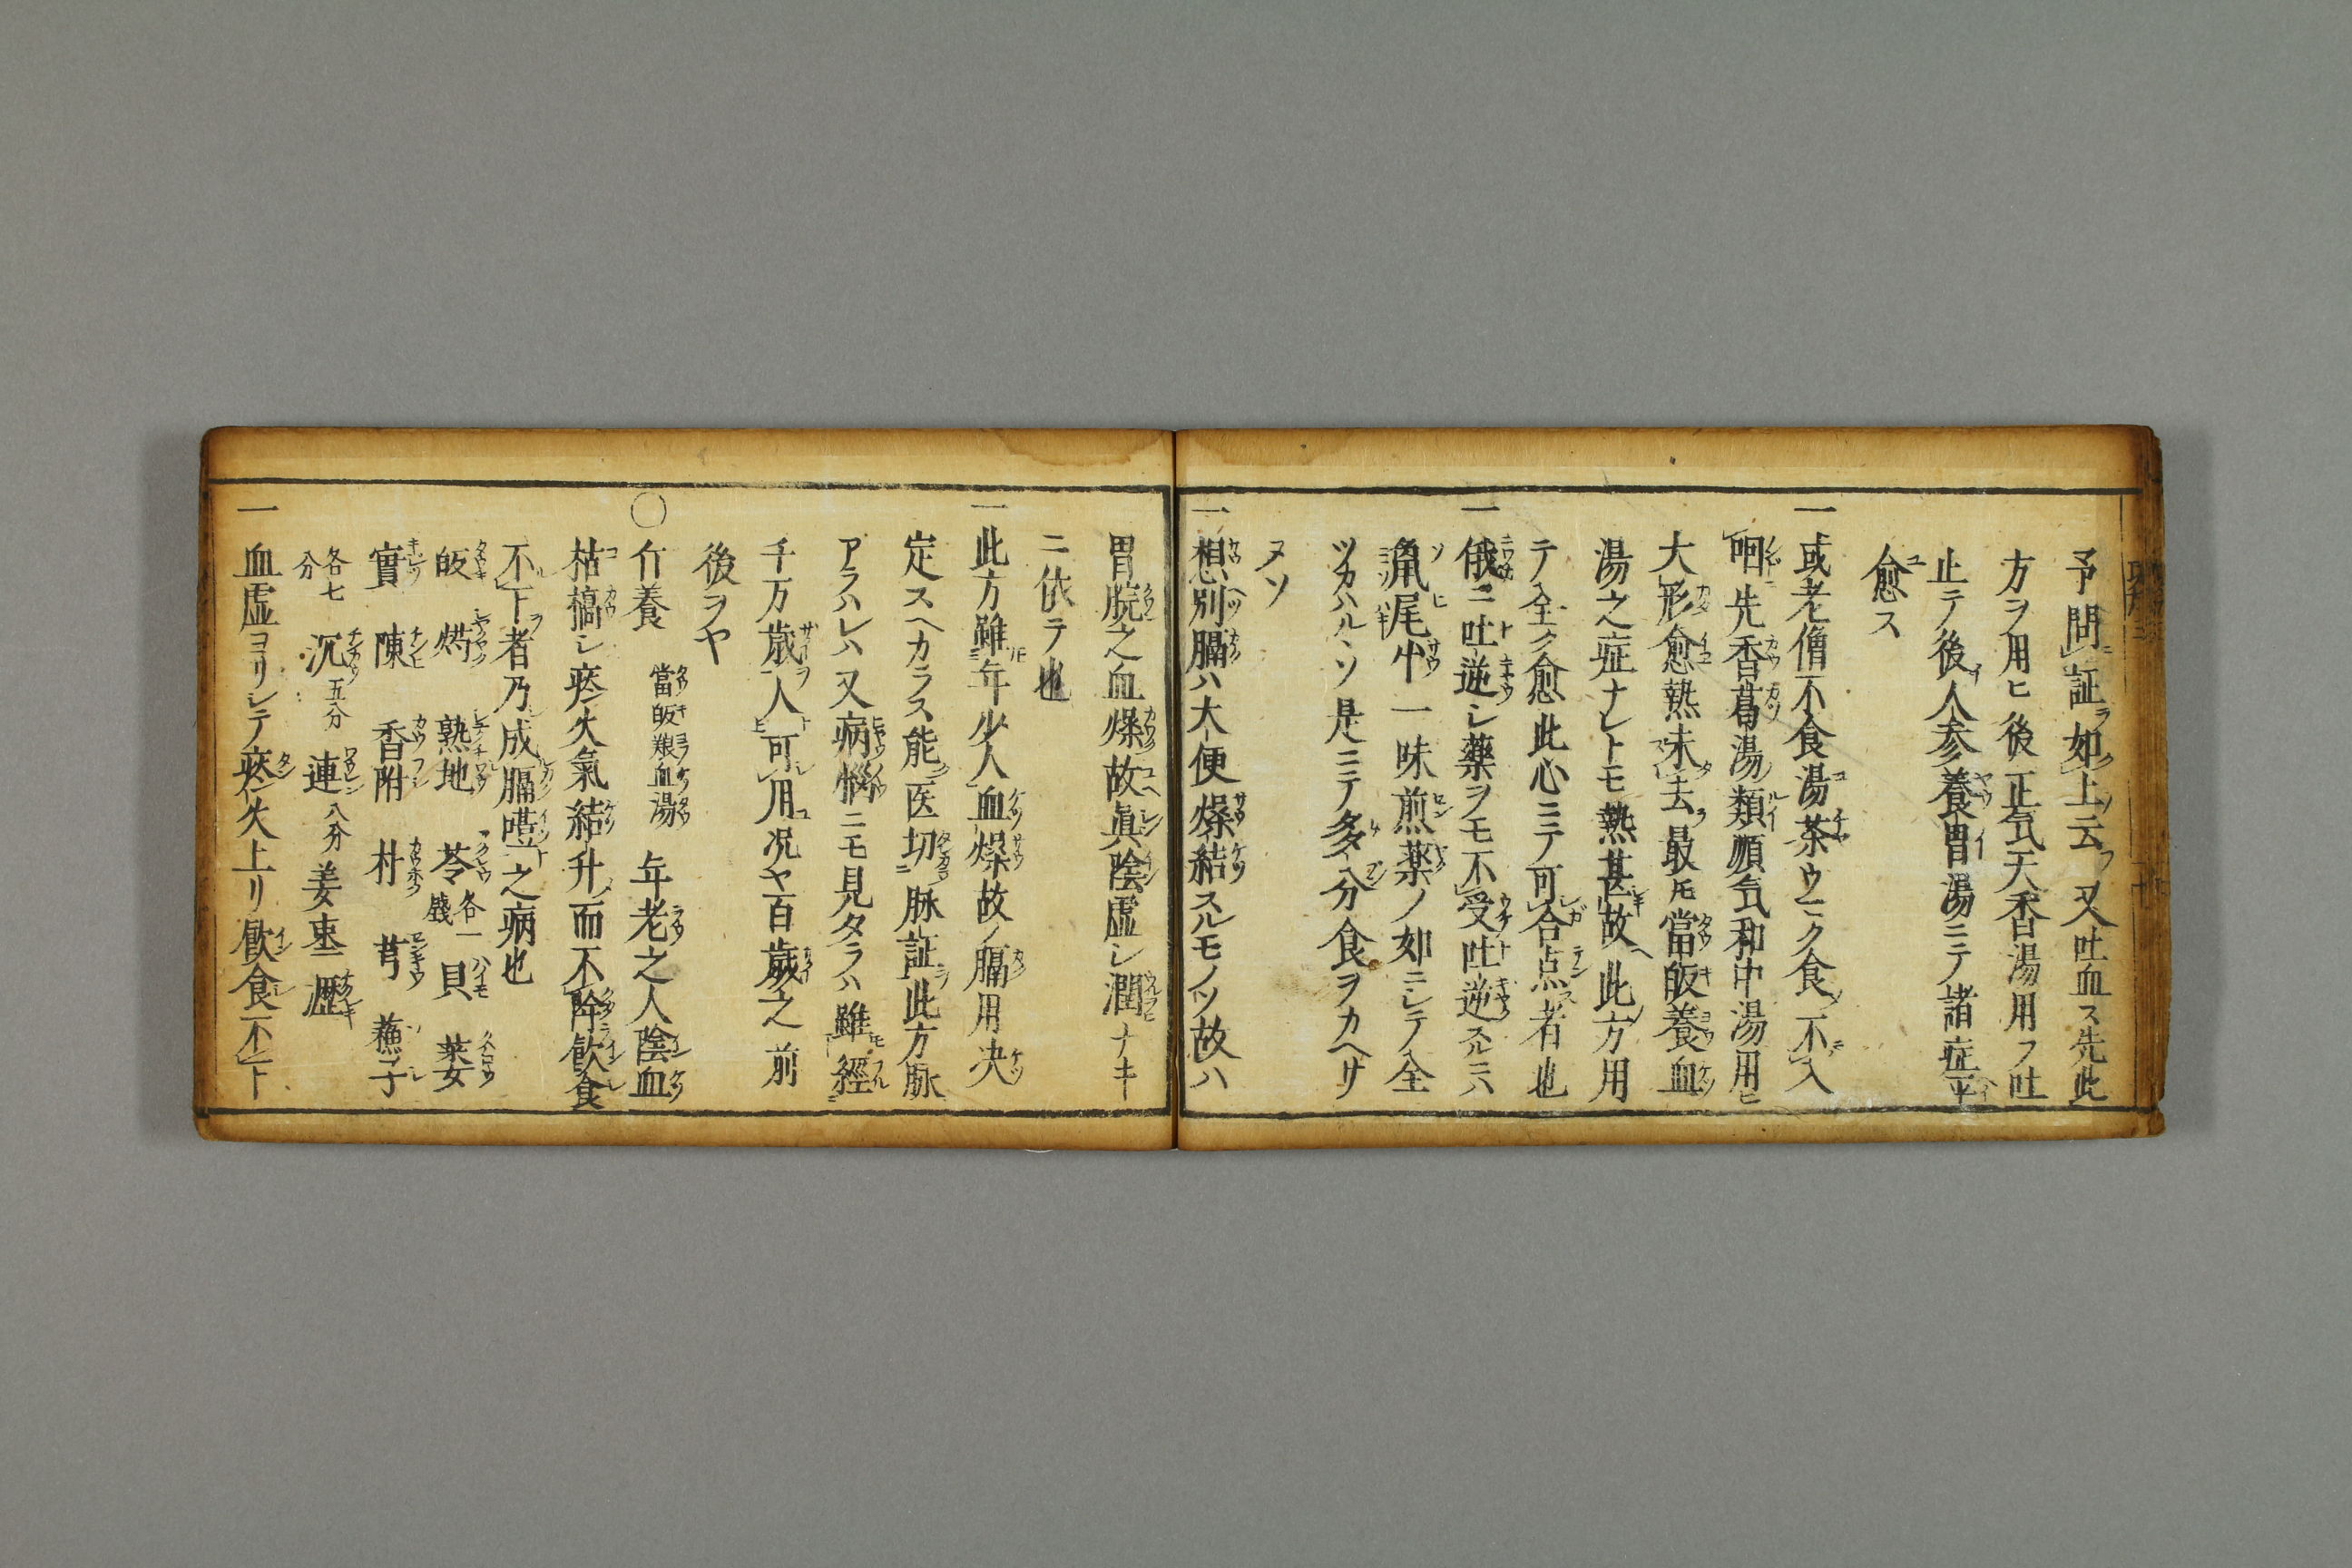 予問証如上云又吐血ス先此
方ヲ用ヒ後正気天香湯用フ吐
止テ後人参養胃湯ニテ諸症平
愈ス
一或老僧不食湯茶ウマク食不入
咽先香葛湯類順気和中湯用ヒ
大形愈熱未去最モ當皈養血
湯之症ナレトモ熱甚故此方用
テ全ク愈此心ミテ可合点者也
一俄ニ吐逆シ藥ヲモ不受吐逆スルニハ
一味煎薬ノ如ニシテ全
ツカハルヽソ是ミテ多分食ヲカヘサ
ヌソ
一想別膈ハ大便燥結スルモノソ故ハ
胃脘之血燥故眞陰虚シ潤ナキ
ニ依テ也
一此方雖年少人血燥故ノ膈用决
定スヘカラス能医切脉証此方脉
アラハレハ又病悩ニモ見タラハ雖經
千万歳人可用况ヤ百歳之前
後ヲヤ
〇亽養 當皈艱血湯 年老之人陰血
枯槁シ痰火氣結升而不降飲食
不下者乃成膈噎之病也
皈 芍 熟地 苓各一錢 貝 蔞
實 陳 香附 朴 芎 蘓子
各七分 沉五分 連八分 姜 棗 瀝
一血虚ヨリシテ痰火上リ飲食不下